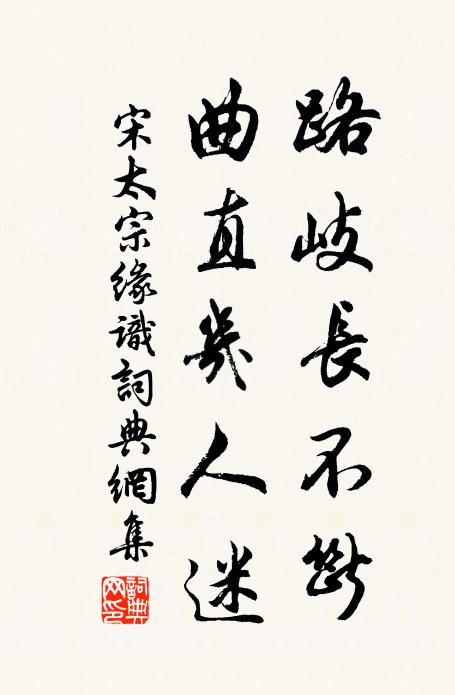 路岐長不斷
曲直幾人迷
宋太宗緣識詞典網集
詞典網印